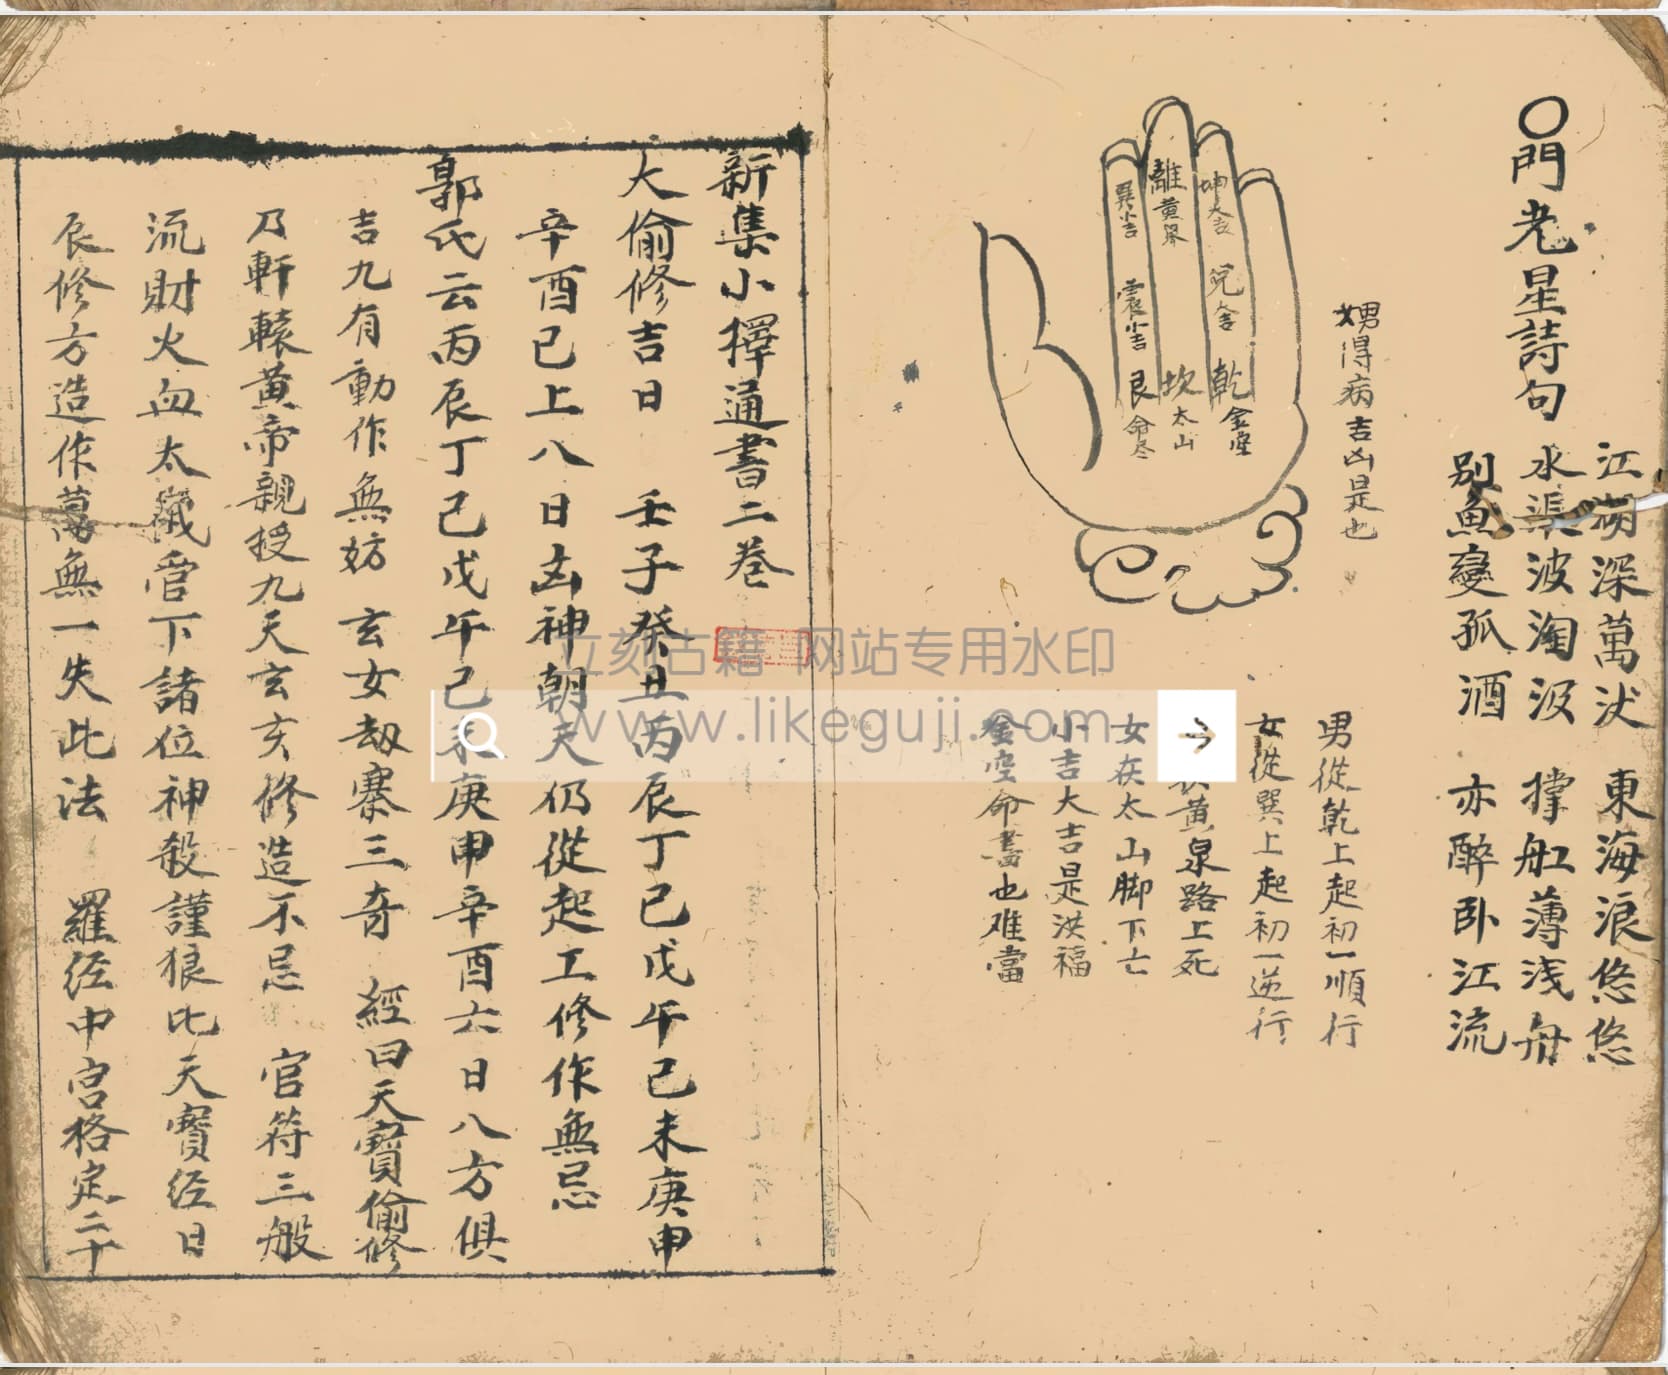 〇門老星詩句
江湖深萬丈 東海浪悠悠
水渠波淘汲 撑舡薄浅舟
别魚變孤酒 亦醉卧江流
男女得病吉凶是也
坤大吉 兌舍 乾金空
離黄泉 坎太山
巽小吉 震小吉 艮命尽
男從乾上起初一順行
女從巽上起初一逆行
黄泉路上死
女在太山脚下亡
小吉大吉是洪福
金空命書也难當
新集小擇通書二卷
大偷修吉日 壬子癸丑丙辰丁巳戊午己未庚申
辛酉已上八日凶神朝天仍從起工修作無忌
郭氏云丙辰丁巳戊午己未庚申辛酉六日八方俱
吉凡有動作無妨 玄女劫寨三奇 經曰天寶偷修
乃軒轅黄帝親授九天玄女修造不忌 官符三般
流財火血太歲管下諸位神殺謹狼比天寶经日
辰修方造作萬無一失此法 羅经中宫格定二十
立刻古籍 网站专用水印
www.likeguji.com